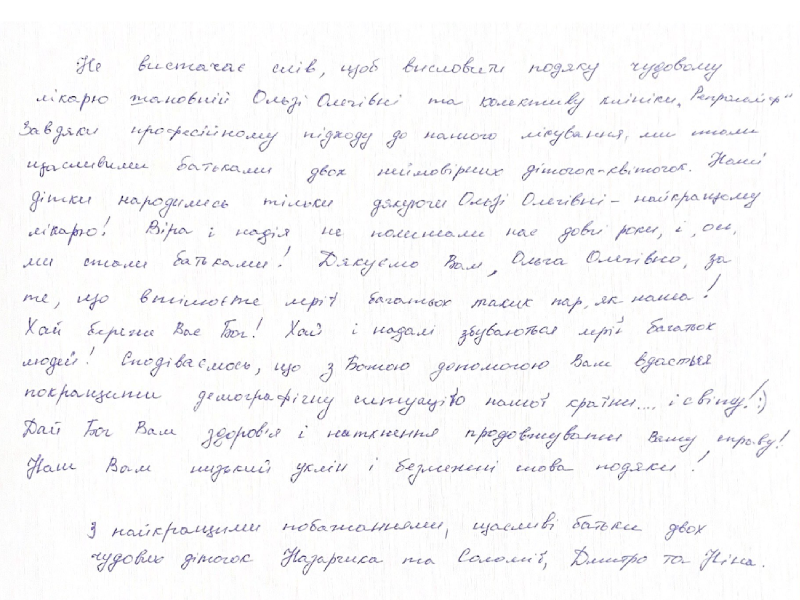 Не вистачає слів, щоб висловити подяку чудовому
лікарю шановній Ользі Олегівні та колективу клініки
Завдяки професійному підходу до нашого лікування, ми стали
щасливими батьками двох неймовірних діточок-квіточок. Наші
дітки народились тільки дякуючи Ользі Олегівні - найкращому
лікарю! Віра і надія не полишали нас довгі роки, і, ось,
ми стали батьками! Дякуємо Вам, Ольга Олегівно, за
те, що втілюєте мрії багатьох таких пар, як наша!
Хай береже Вас Бог! Хай і надалі збуваються мрії багатьох
людей! Сподіваємось, що з Божою допомогою Вам вдасться
покращити демографічну ситуацію нашої країни.... і світу! :)
Дай Бог Вам здоров'я і натхнення продовжувати Вашу справу!
Наш Вам низький уклін і безмежні слова подяки!
З найкращими побажаннями, щасливі батьки двох
чудових діточок Назарчика та Соломії, Дмитро та Ніна.